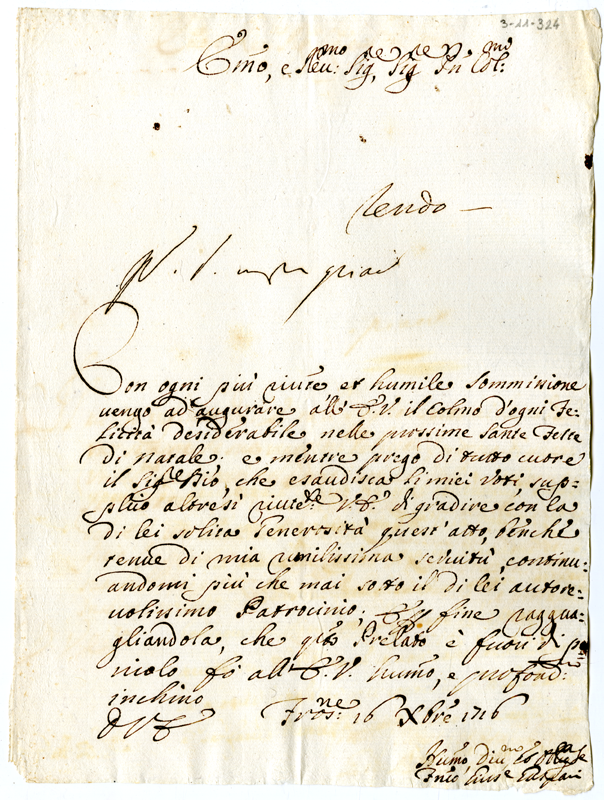 3-11-324
Emo, e Reu:mo Sig.re, Sig.re Pn Col:mo
Rendo —
gratie
Con ogni più riuerte et humile sommissione
uengo ad augurare all' E.V. il colmo d'ogni fe-
licità desiderabile nelle prossime sante feste
di natale: e mentre prego di tutto cuore
il Sig.re Dio, che esaudisca li miei voti, sup-
plico altresì V.E. di gradire con la
di lei solita generosità quest' atto, benche
tenue di mia umilissima seruitù, continu-
andomi più che mai sotto il di lei autore-
uolissimo Patrocinio; fine raggua-
gliandola, che qto Prelato è fuori di pe-
ricolo fò all' E.V. humo, e profond:mo
inchino
D V E Fros:ne 16 Xbre 1716
Humo, diu:mo et obl